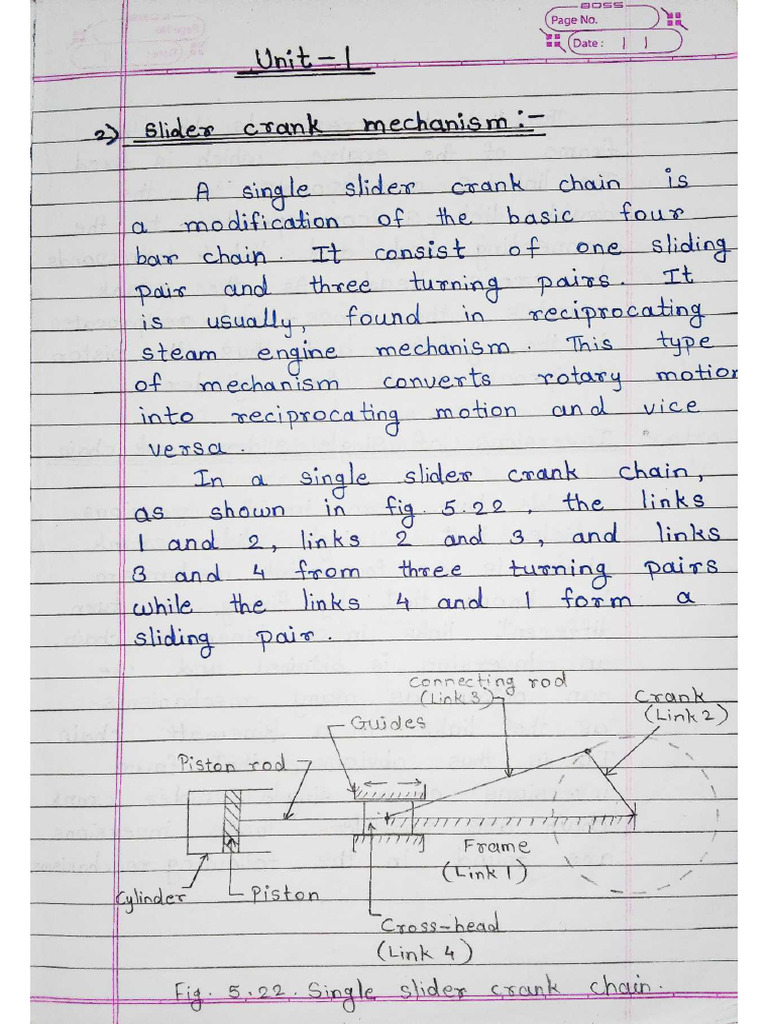 BOSS
Page No.
Date :
Unit - 1
2) Slider crank mechanism :-
A single slider crank chain is
a modification of the basic four
bar chain. It consist of one sliding
pair and three turning pairs. It
is usually, found in reciprocating
steam engine mechanism. This type
of mechanism converts rotary motion
into reciprocating motion and vice
versa.
In a single slider crank chain,
as shown in fig. 5.22, the links
1 and 2, links 2 and 3, and links
3 and 4 from three turning pairs
while the links 4 and 1 form a
sliding pair.
Connecting rod
(Link 3)
Crank
(Link 2)
Guides
Piston rod
Frame
(Link 1)
Cylinder
Piston
Cross-head
(Link 4)
Fig. 5.22. Single slider crank chain.